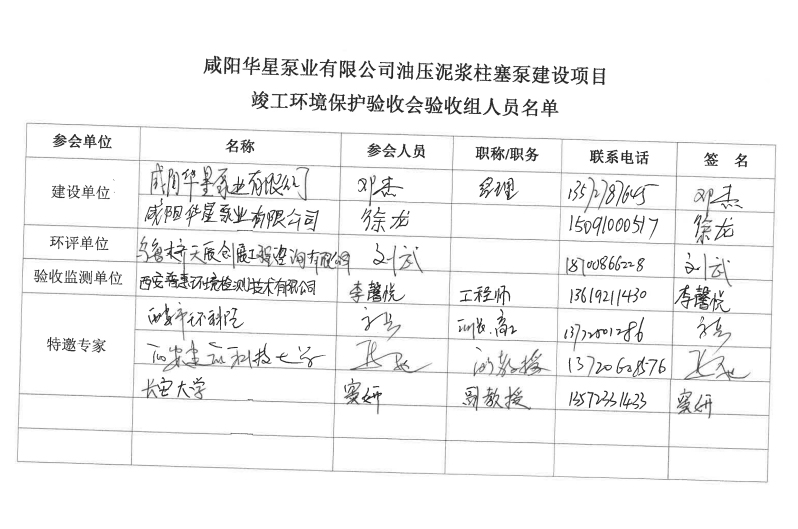 咸阳华星泵业有限公司油压泥浆柱塞泵建设项目
竣工环境保护验收会验收组人员名单
参会单位 名称 参会人员 职称/职务 联系电话 签 名
建设单位 咸阳华星泵业有限公司 邓杰 经理 邓杰
咸阳华星泵业有限公司 徐龙 15091000517 徐龙
环评单位 乌鲁木齐天辰创展工程咨询有限公司 刘武 18700866228 刘武
验收监测单位 西安普惠环境检测技术有限公司 李馨悦 工程师 13619211430 李馨悦
特邀专家 西安市环科院 高工 13772001286
西安建筑科技大学 副教授 13720628576
长安大学 窦妍 副教授 13572331433 窦妍